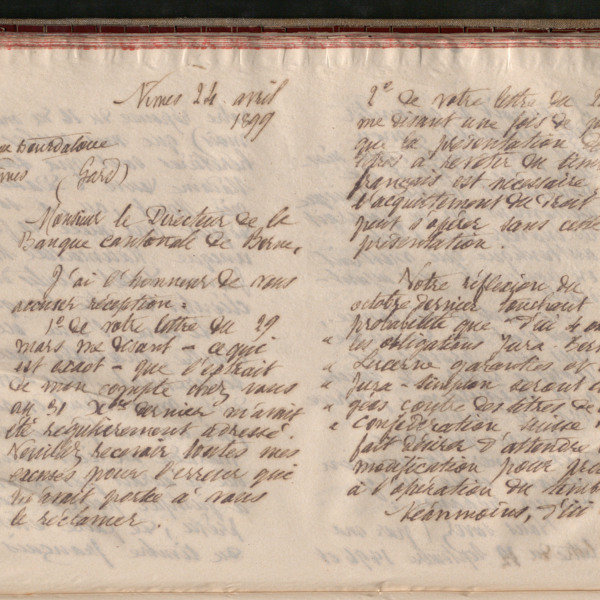 Nimes 24 avril
1899
rue Bourdaloue
(Gard)
Monsieur le Directeur de la
Banque cantonale de Berne,
J'ai l'honneur de vous
accuser réception :
1º de votre lettre du 29
mars me disant – ce qui
est exact – que l'extrait
de mon compte chez vous
au 31 Xbre dernier m'avait
été régulièrement adressé.
Veuillez recevoir toutes mes
excuses pour l'erreur qui
m'avait porté à vous
le réclamer.
2º de votre lettre du
me disant une fois de
que la présentation
à revêtir du
français est nécessaire
l'acquittement du droit
peut s'opérer sans cette
présentation.
Notre réflexion du
octobre dernier touchant
probabilité que "d'ici
" les obligations Jura-Ber
" Lucerne garanties et
" Jura-Simplon seront
" contre des titres de
" Confédération suisse
fait désirer d'attendre
modification pour
à l'opération du
Néanmoins, d'ici